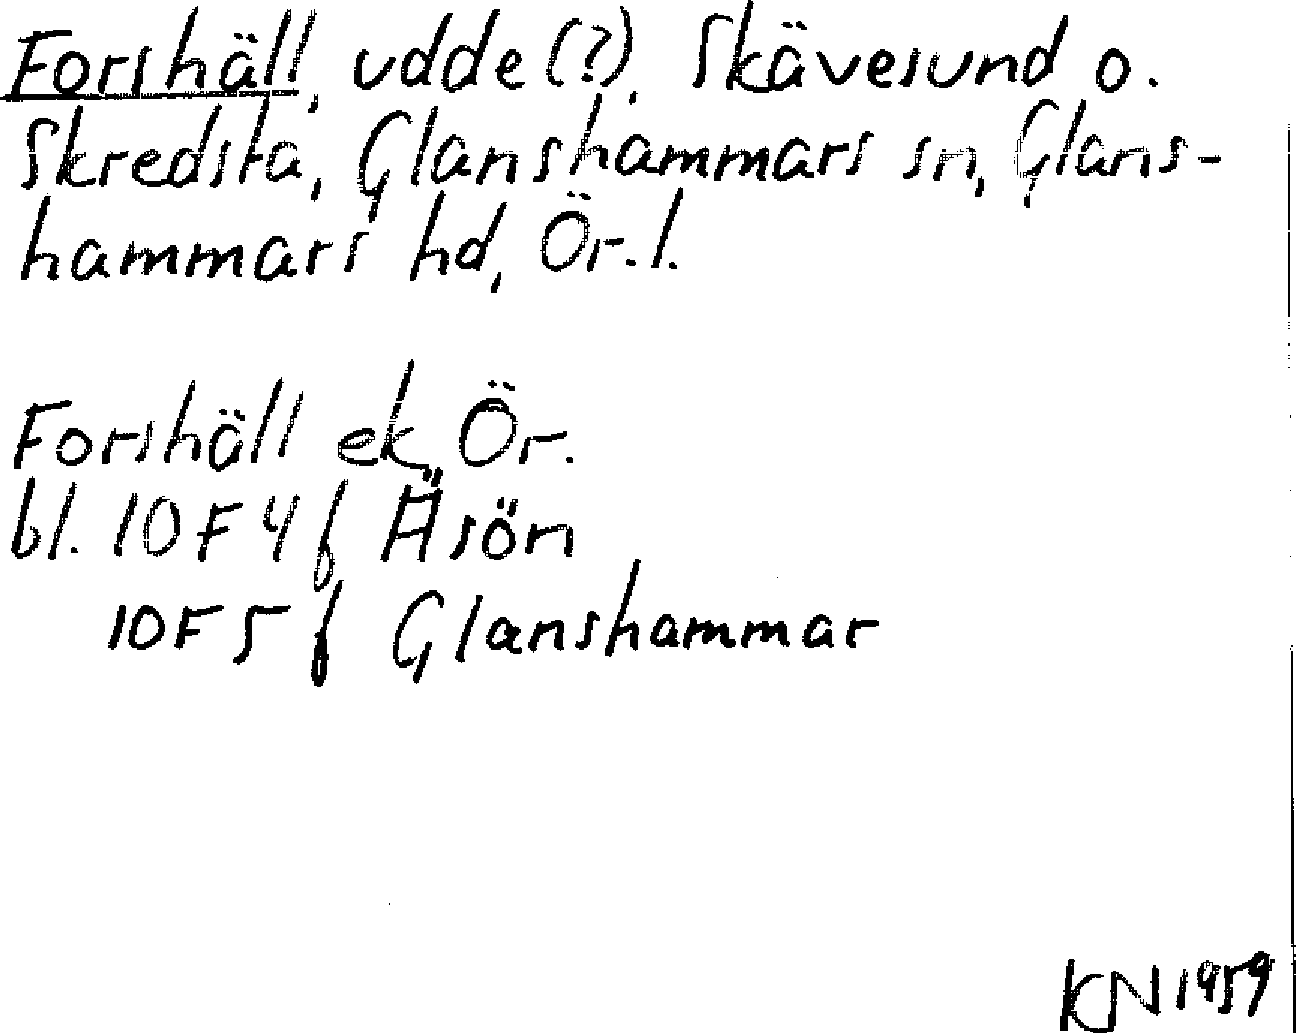 Forshäll, udde (?), Skävesund o.
Skredsta, Glanshammars sn, Glans-
hammars hd, Ör. l.
Forshäll ek. Ör.
bl. 10F 4f Äsön
10F 5f Glanshammar
KN 1959